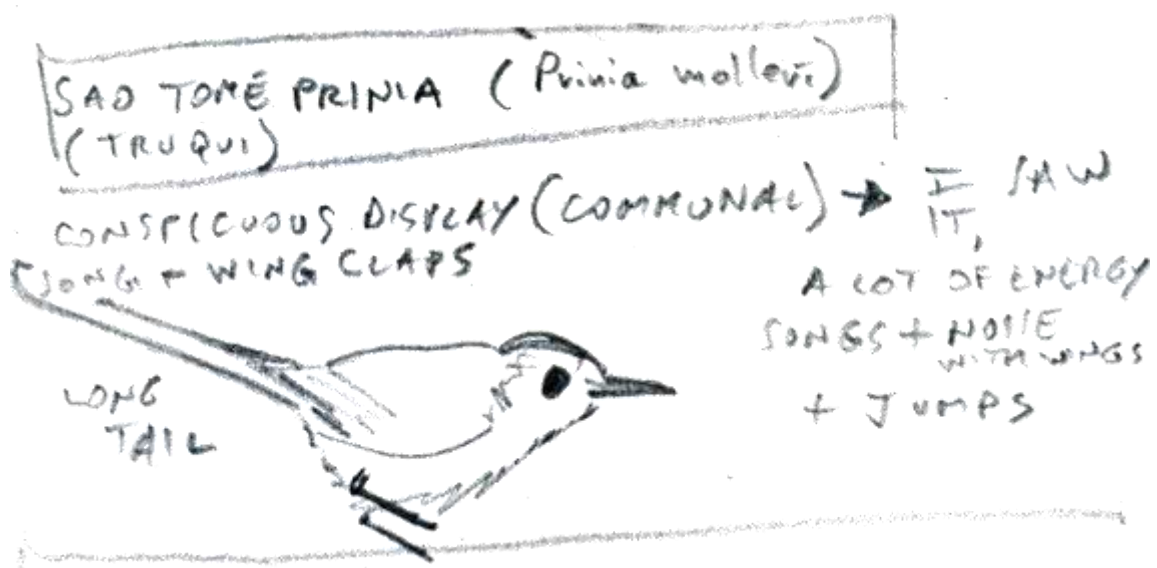 SAO TOMÉ PRINIA (Prinia molleri)
(TRUQUI)
CONSPICUOUS DISPLAY (COMMUNAL) → I SAW
IT,
SONG + WING CLAPS
A LOT OF ENERGY
SONGS + NOISE
WITH WINGS
+ JUMPS
LONG
TAIL